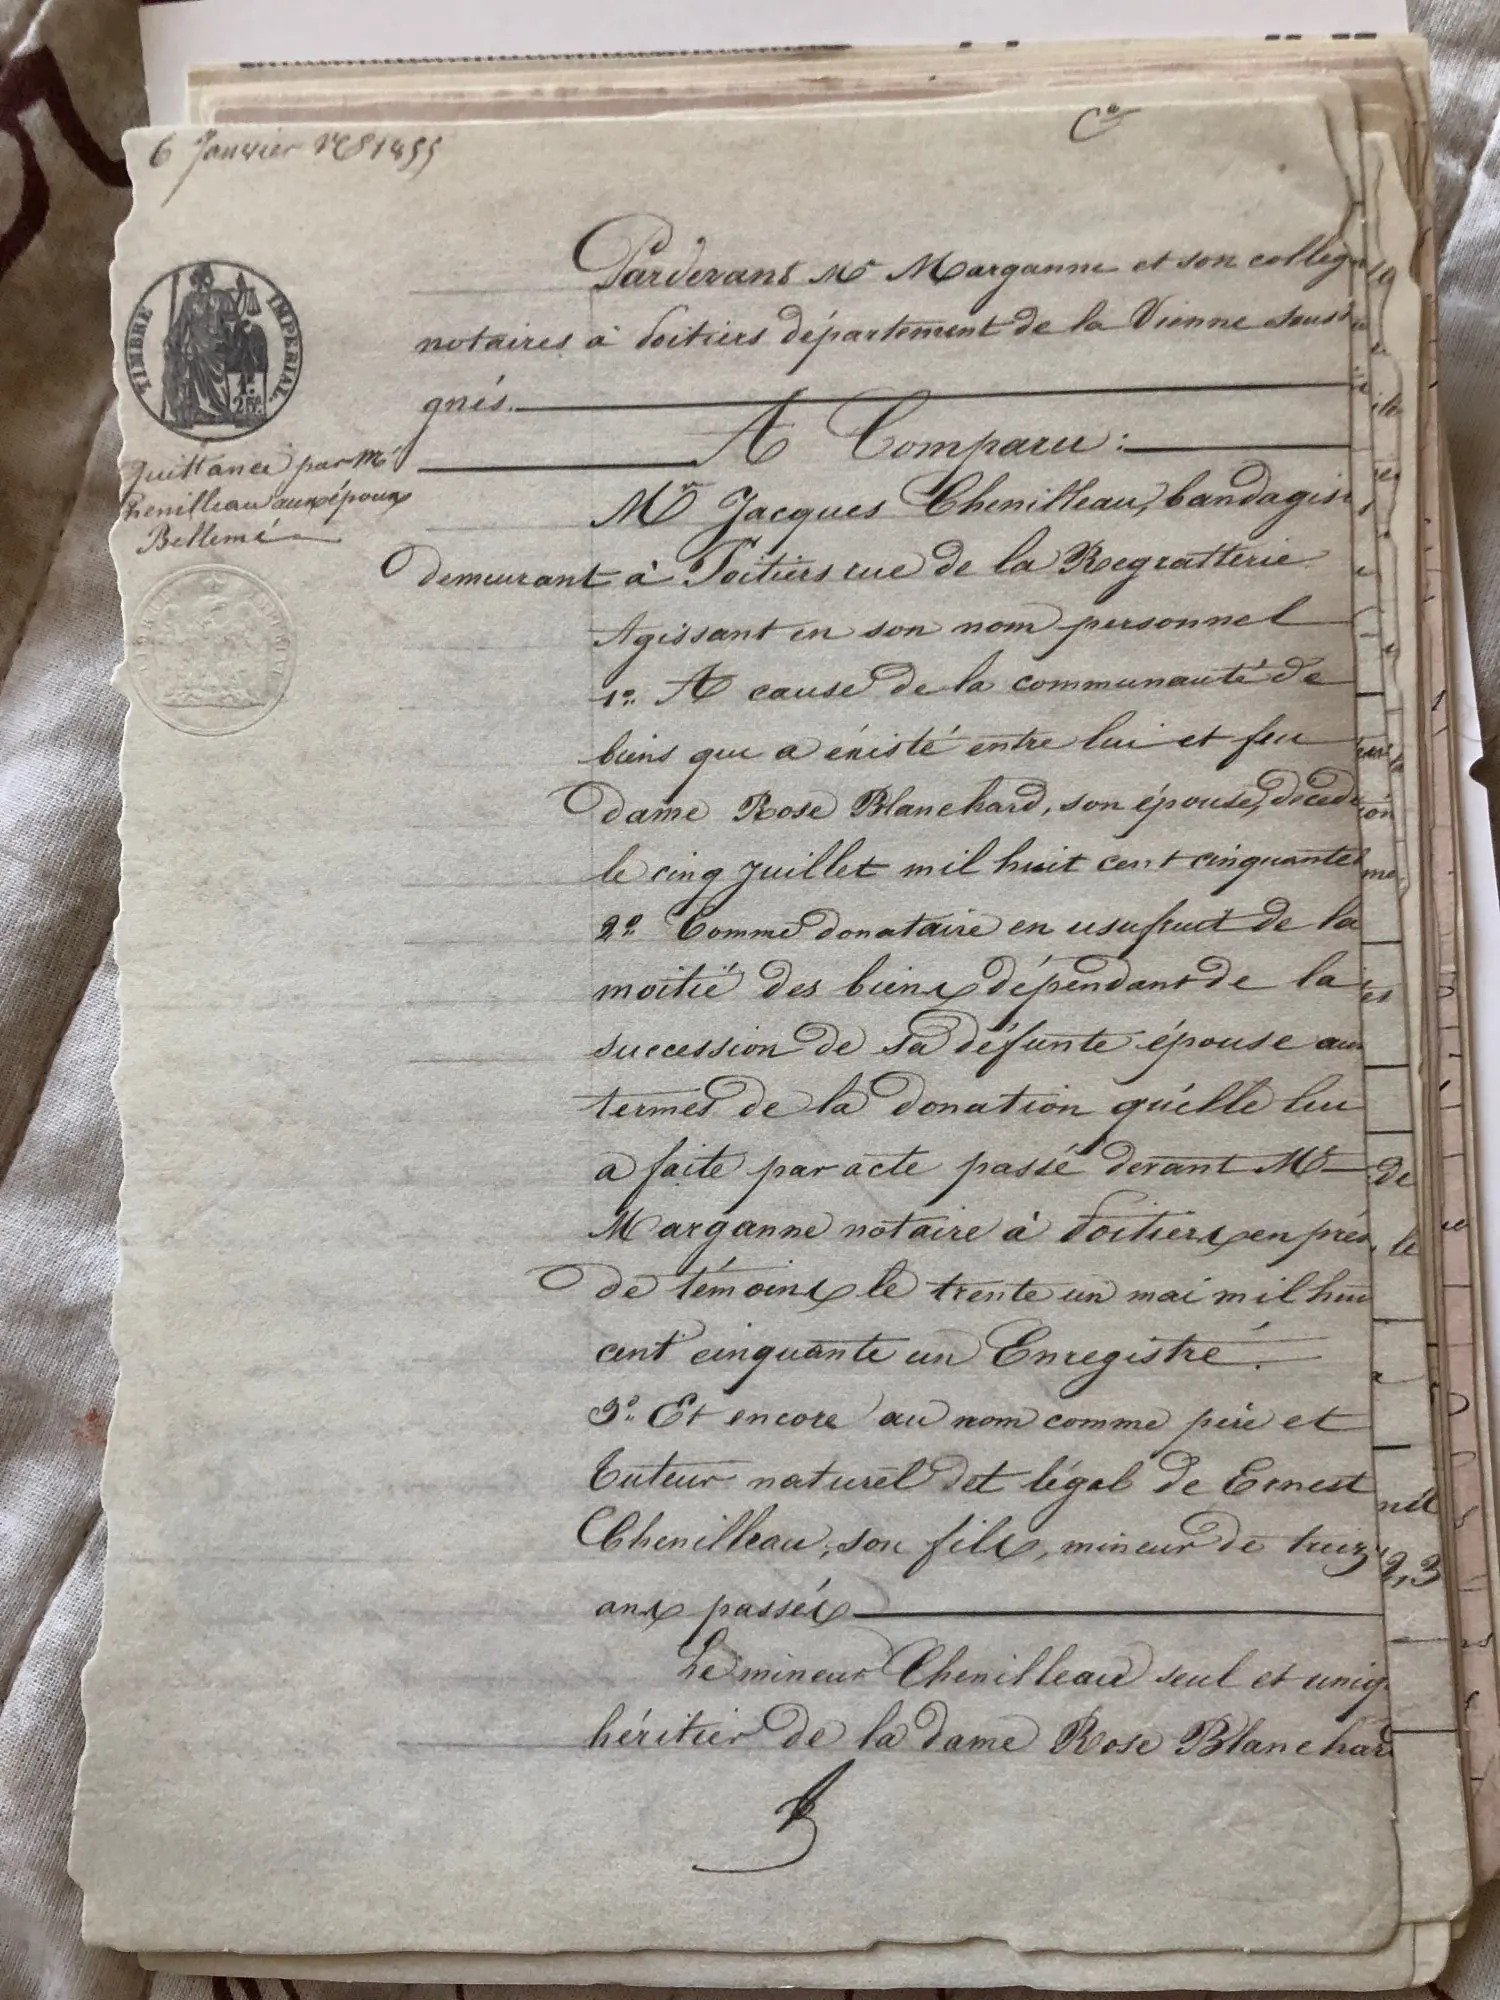 6 Janvier 1855
Pardevant Me Marganne et son collèg
notaires à Poitiers département de la Vienne soussi
gnés.
A Comparu :
Mr Jacques Chenilleau, bandagis
demeurant à Poitiers rue de la Regratterie
Agissant en son nom personnel
1o. A cause de la communauté de
biens qui a éxisté entre lui et feu
dame Rose Blanchard, son épouse, décédé
le cinq juillet mil huit cent cinquante
2o. Comme donataire en usufruit de la
moitié des biens dépendant de la
succession de sa défunte épouse aux
termes de la donation qu'elle lui
a faite par acte passé devant Me
Marganne notaire à Poitiers en prés
de témoins le trente un mai mil hui
cent cinquante un Enregistré.
3o. Et encore au nom comme père et
tuteur naturel et légal de Ernest
Chenilleau, son fils, mineur de treiz
ans passés
Le mineur Chenilleau seul et uniq
héritier de la dame Rose Blanchard
TIMBRE IMPERIAL
1f. 25c.
Quittance par Mr
Chenilleau aux époux
Bellemé